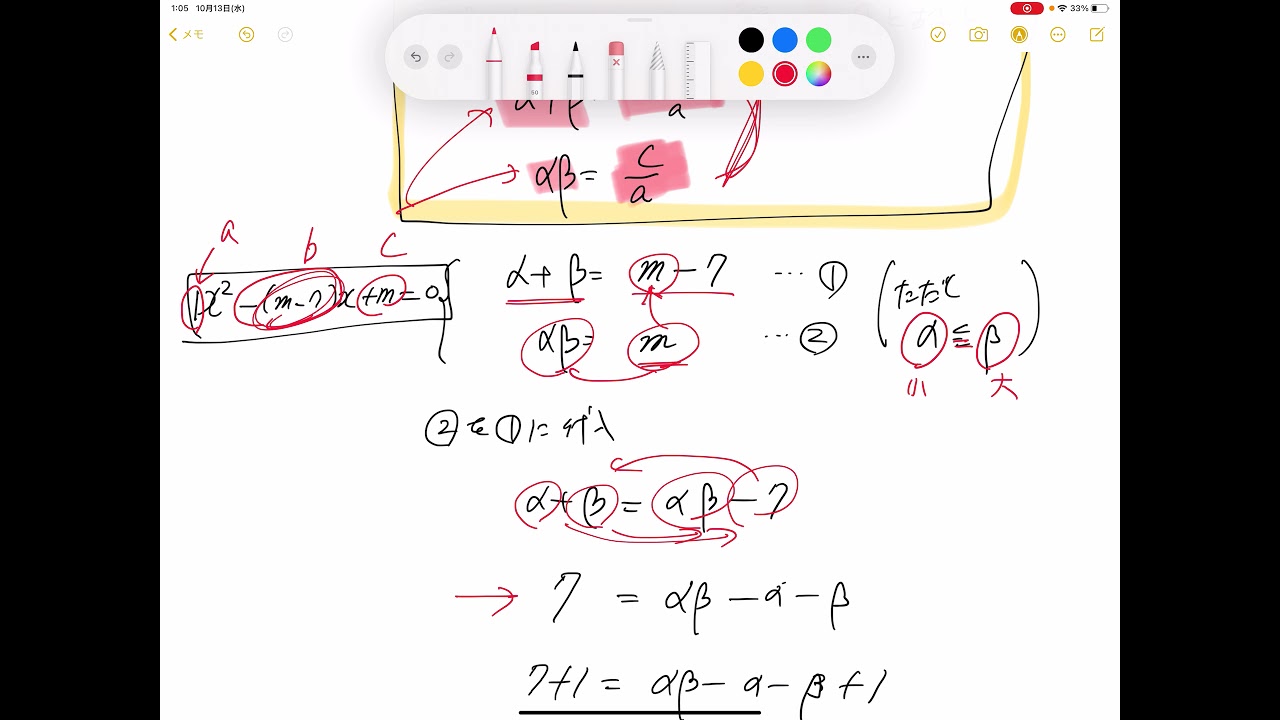 1:05 10月13日(水)
33%
メモ
50
α+β a
αβ = c/a
a b c
1x² -(m-7)x +m = 0
α + β = m - 7 … ①
αβ = m … ②
(ただし
α ≦ β)
小 大
②を①に代入
α + β = αβ - 7
→ 7 = αβ - α - β
7+1 = αβ - α - β + 1